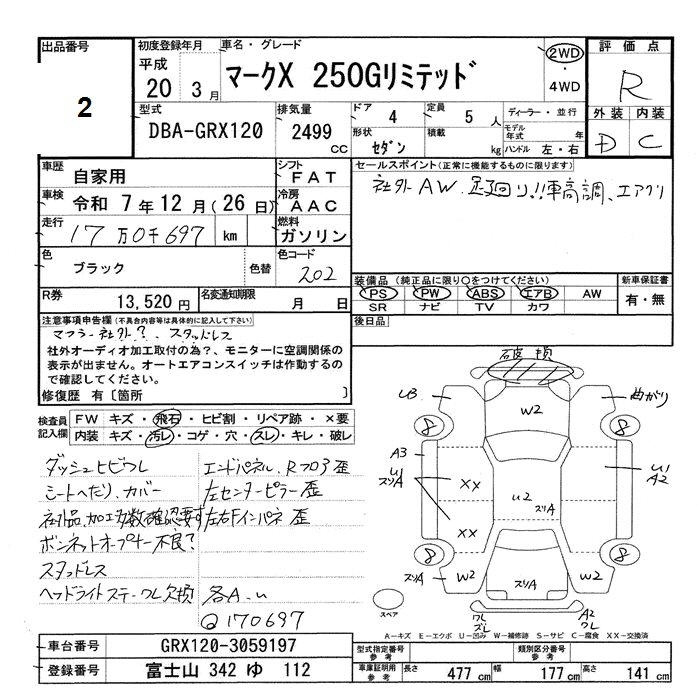 出品番号
2
初度登録年月
平成
20 3 月
車名・グレード
マークX 250Gリミテッド
2WD
・
4WD
評価点
R
外装 内装
D C
型式
DBA-GRX120
排気量
2499 CC
ドア 4
定員 5 人
ディーラー・並行
形状 セダン
積載 kg
モデル年式 年
ハンドル 左・右
車歴
自家用
シフト
FAT
車検
令和 7年12月(26日)
冷房
AAC
走行
17万0千697 km
燃料
ガソリン
色
ブラック
色替
色コード
202
R券
13,520円
名変通知期限
月 日
セールスポイント(正常に機能するものに限ります)
社外AW.足廻り!!車高調、エアクリ
装備品(純正品に限り○をつけてください)
PS PW ABS エアB AW
SR ナビ TV カワ
新車保証書
有・無
後日品
注意事項申告欄(不具合内容等は具体的に記入して下さい)
マフラー社外?、スタッドレス
社外オーディオ加工取付の為?、モニターに空調関係の
表示が出ません。オートエアコンスイッチは作動するの
で確認してください。
修復歴 有〔箇所 〕
検査員
記入欄
FW キズ・飛石・ヒビ割・リペア跡・×要
内装 キズ・汚レ・コゲ・穴・スレ・キレ・破レ
ダッシュヒビワレ
シートへたり、カバー
社外品、加工多数確認要す
ボンネットオープナー不良?
スタッドレス
ヘッドライトステーワレ欠損
エンドパネル、Rフロア歪
左センターピラー歪
左右Fインパネ歪
各A.u
@170697
破損
U3
W2
曲がり
8
8
A3
U1
スリA
××
××
U2
スリA
U1
A2
8
8
スリA
W2
スリA
W2
スペア
ワレ
ズレ
A2
ワレ
A-キズ E-エクボ U-凹み W-補修跡 S-サビ C-腐食 XX-交換済
車台番号
GRX120-3059197
登録番号
富士山 342 ゆ 112
型式指定番号
参考
類別区分番号
参考
車庫証明用
参考
長さ 477 cm
幅 177 cm
高さ 141 cm